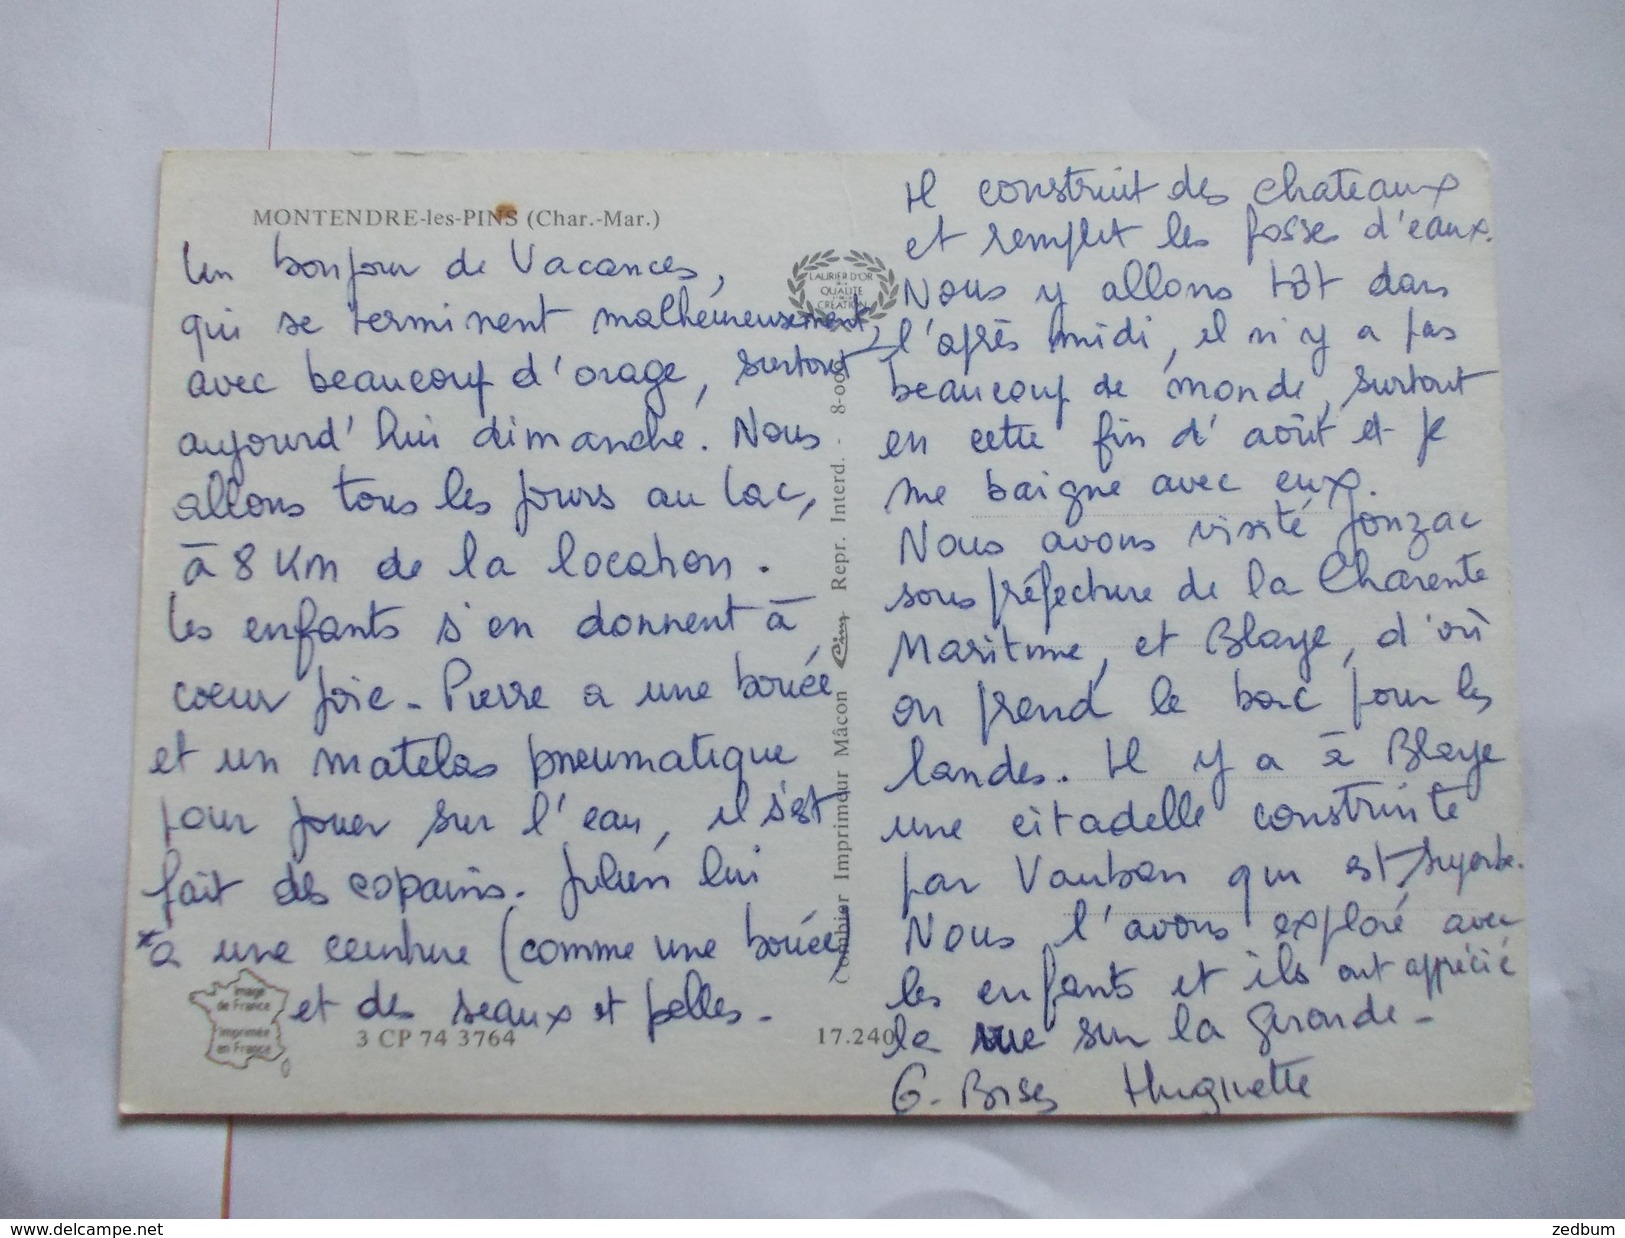 MONTENDRE-les-PINS (Char.-Mar.)
Un bonjour de Vacances,
qui se terminent malheureusement,
avec beaucoup d'orage, surtout
aujourd'hui dimanche. Nous
allons tous les jours au lac,
à 8 Km de la location.
Les enfants s'en donnent à
coeur joie - Pierre a une bouée
et un matelas pneumatique
pour jouer sur l'eau, il s'est
fait des copains. Julien lui
*a une ceinture (comme une bouée)
et des seaux et pelles -
Image
de France
imprimée
en France
3 CP 74 3764
17.240
LAURIER D'OR
QUALITE
CREATION
Combier Imprimeur Mâcon Cim Repr. Interd. - 8-000
Il construit des chateaux
et remplit les fosses d'eaux.
Nous y allons tôt dans
l'après midi, il n'y a pas
beaucoup de monde, surtout
en cette fin d'août et je
me baigne avec eux.
Nous avons visité Jonzac
sous préfecture de la Charente
Maritime, et Blaye, d'où
on prend le bac pour les
landes. Il y a à Blaye
une citadelle construite
par Vauban qui est superbe.
Nous l'avons exploré avec
les enfants et ils ont apprécié
la vue sur la Gironde -
G. Bises Huguette
www.delcampe.net
zedbum